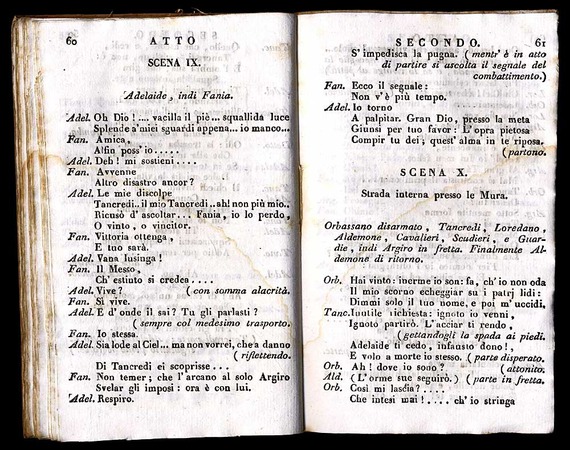 60
ATTO
SCENA IX.
Adelaide, indi Fania.
Adel. Oh Dio!.... vacilla il piè... squallida luce
Splende a'miei sguardi appena... io manco...
Fan. Amica,
Alfin poss'io.....
Adel. Deh! mi sostieni....
Fan. Avvenne
Altro disastro ancor?
Adel. Le mie discolpe
Tancredi.. il mio Tancredi.. ah! non più mio..
Ricusò d'ascoltar... Fania, io lo perdo,
O vinto, o vincitor.
Fan. Vittoria ottenga,
E tuo sarà.
Adel. Vana lusinga!
Fan. Il Messo,
Ch'estiuto si credea....
Adel. Vive? (con somma alacrità.
Fan. Si vive.
Adel. E d'onde il sai? Tu gli parlasti?
(sempre col medesimo trasporto.
Fan. Io stessa.
Adel. Sia lode al Ciel... ma non vorrei, che a danno
(riflettendo.
Di Tancredi ei scoprisse...
Fan. Non temer; che l'arcano al solo Argiro
Svelar gli imposi: ora è con lui.
Adel. Respiro.
SECONDO.
61
S'impedisca la pugna. (mentr'è in atto
di partire si ascolta il segnale del
combattimento.)
Fan. Ecco il segnale:
Non v'è più tempo.
Adel. Io torno
A palpitar. Gran Dio, presso la meta
Giunsi per tuo favor: L'opra pietosa
Compir tu dei; quest'alma in te riposa.
(partono.
SCENA X.
Strada interna presso le Mura.
Orbassano disarmato, Tancredi, Loredano,
Aldemone, Cavalieri, Scudieri, e Guar-
die, indi Argiro in fretta. Finalmente Al-
demone di ritorno.
Orb. Hai vinto: inerme io son: fa, ch'io non oda
Il mio scorno echeggiar su i patrj lidi:
Dimmi solo il tuo nome, e poi m'uccidi,
Tanc. Inutile richiesta: ignoto io venni,
Ignoto partirò. L'acciar ti rendo,
(gettandogli la spada ai piedi.
Adelaide ti cedo, infausto dono!,
E volo a morte io stesso. (parte disperato.
Orb. Ah! dove io sono? (attonito.
Ald. (L'orme sue seguirò.) (parte in fretta.
Orb. Così mi lascia?....
Che intesi mai!.... ch'io stringa